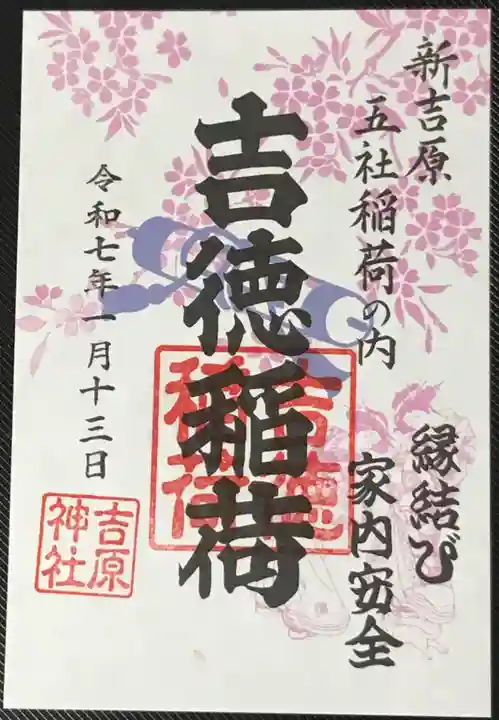 新吉原
五社稲荷の内
縁結び
家内安全
吉徳稲荷
吉徳
稲荷
令和七年一月十三日
吉原
神社